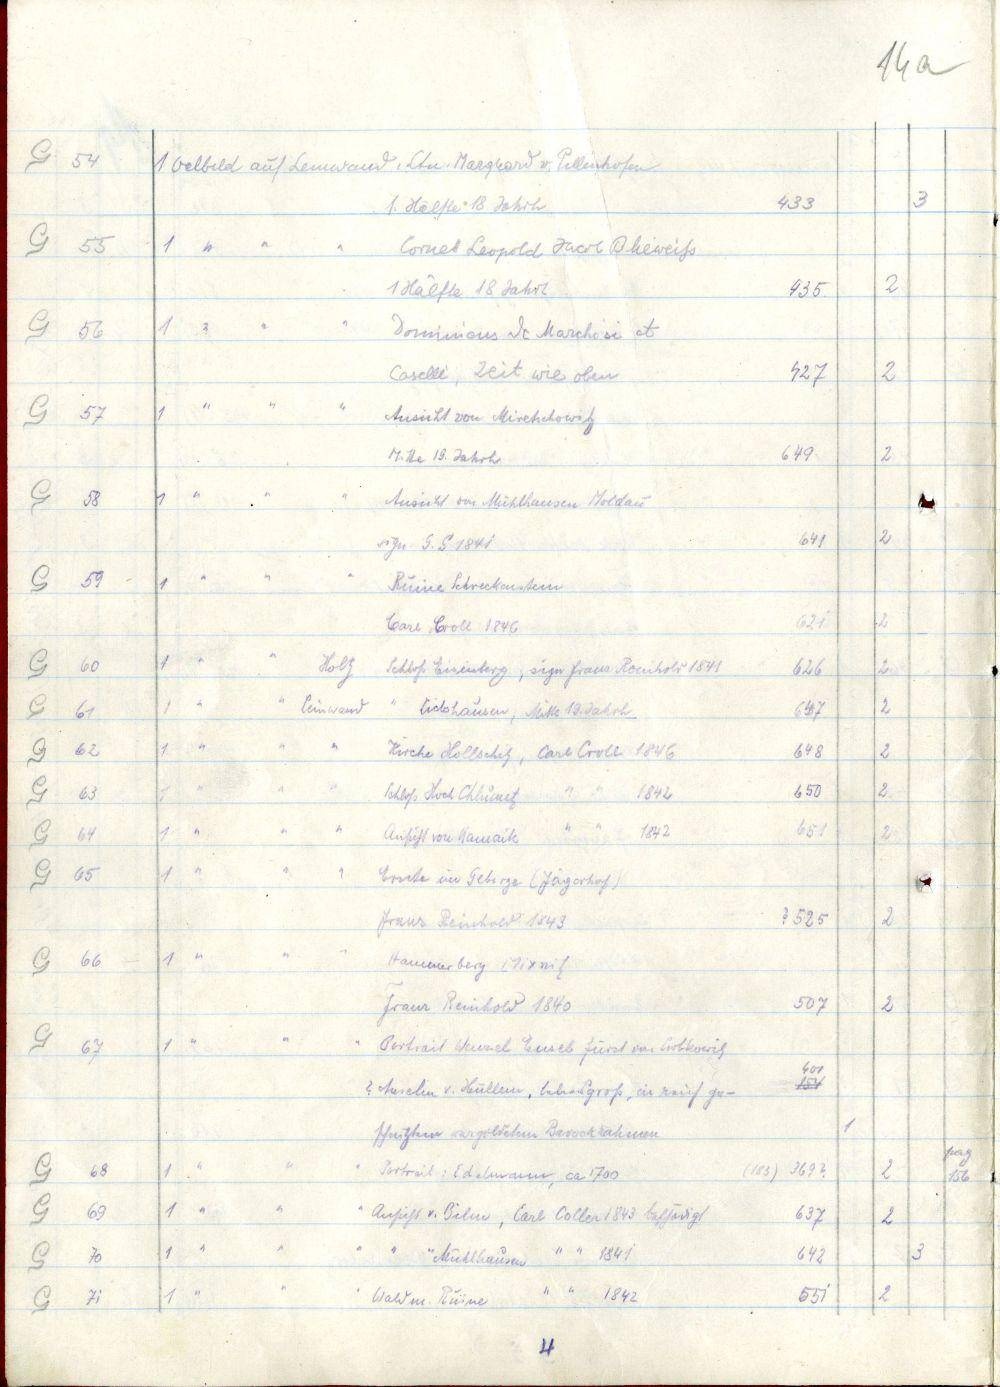 14a
G 54 1 Oelbild auf Leinwand, Ltn. Marquard v. Pellenhofen
1. Hälfte 18 Jahrh 433 3
G 55 1 " " " Cornet Leopold Jacob
1 Hälfte 18 Jahrh 435 2
G 56 1 " " " Dominicus de Marchesi et
Caselli, Zeit wie oben 427 2
G 57 1 " " " Ansicht von Miretschowitz
Mitte 19. Jahrh 649 2
G 58 1 " " " Ansicht von Mühlhausen Moldau
sign. G.G 1841 641 2
G 59 1 " " " Ruine Schreckenstein
Carl Croll 1846 621 2
G 60 1 " " Holz Schloß Eisenberg, sign Franz Reinhold 1841 626 2
G 61 1 " " Leinwand " Eichhausen, Mitte 19. Jahrh 647 2
G 62 1 " " " Kirche Hollschitz, Carl Croll 1846 648 2
G 63 1 " " " Schloß Hoch Chlumetz " " 1842 650 2
G 64 1 " " " Ansicht von Kamaik " " 1842 651 2
G 65 1 " " " Ernte im Gebirge (Jägerhof)
Franz Reinhold 1843 ? 525 2
G 66 1 " " " Hammerberg
Franz Reinhold 1840 507 2
G 67 1 " " " Portrait Wenzel Euseb Fürst von Lobkowitz
401
? Anselm v. Hüllem, lebensgroß, in reich ge- 154
schnitzten vergoldetem Barockrahmen 1
G 68 1 " " " Portrait: Edelmann, ca 1700 (183) 369? 2 pag 156
G 69 1 " " " Ansicht v. Bilin, Carl Coller 1843 beschädigt 637 2
G 70 1 " " " " " Mühlhausen " " 1841 642 3
G 71 1 " " " Wald m. Ruine " " 1842 551 2
4